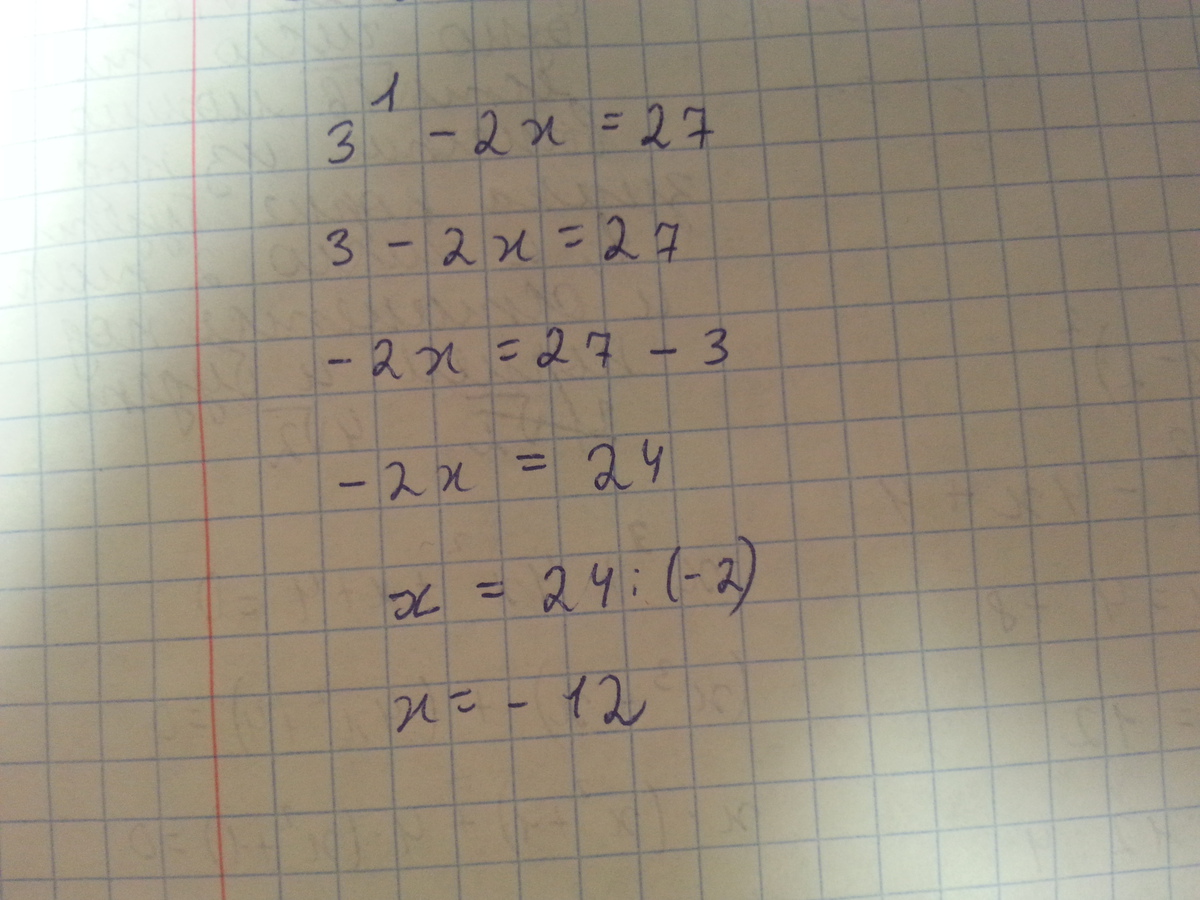 3¹ - 2x = 27
3 - 2x = 27
- 2x = 27 - 3
- 2x = 24
x = 24 : (-2)
x = - 12